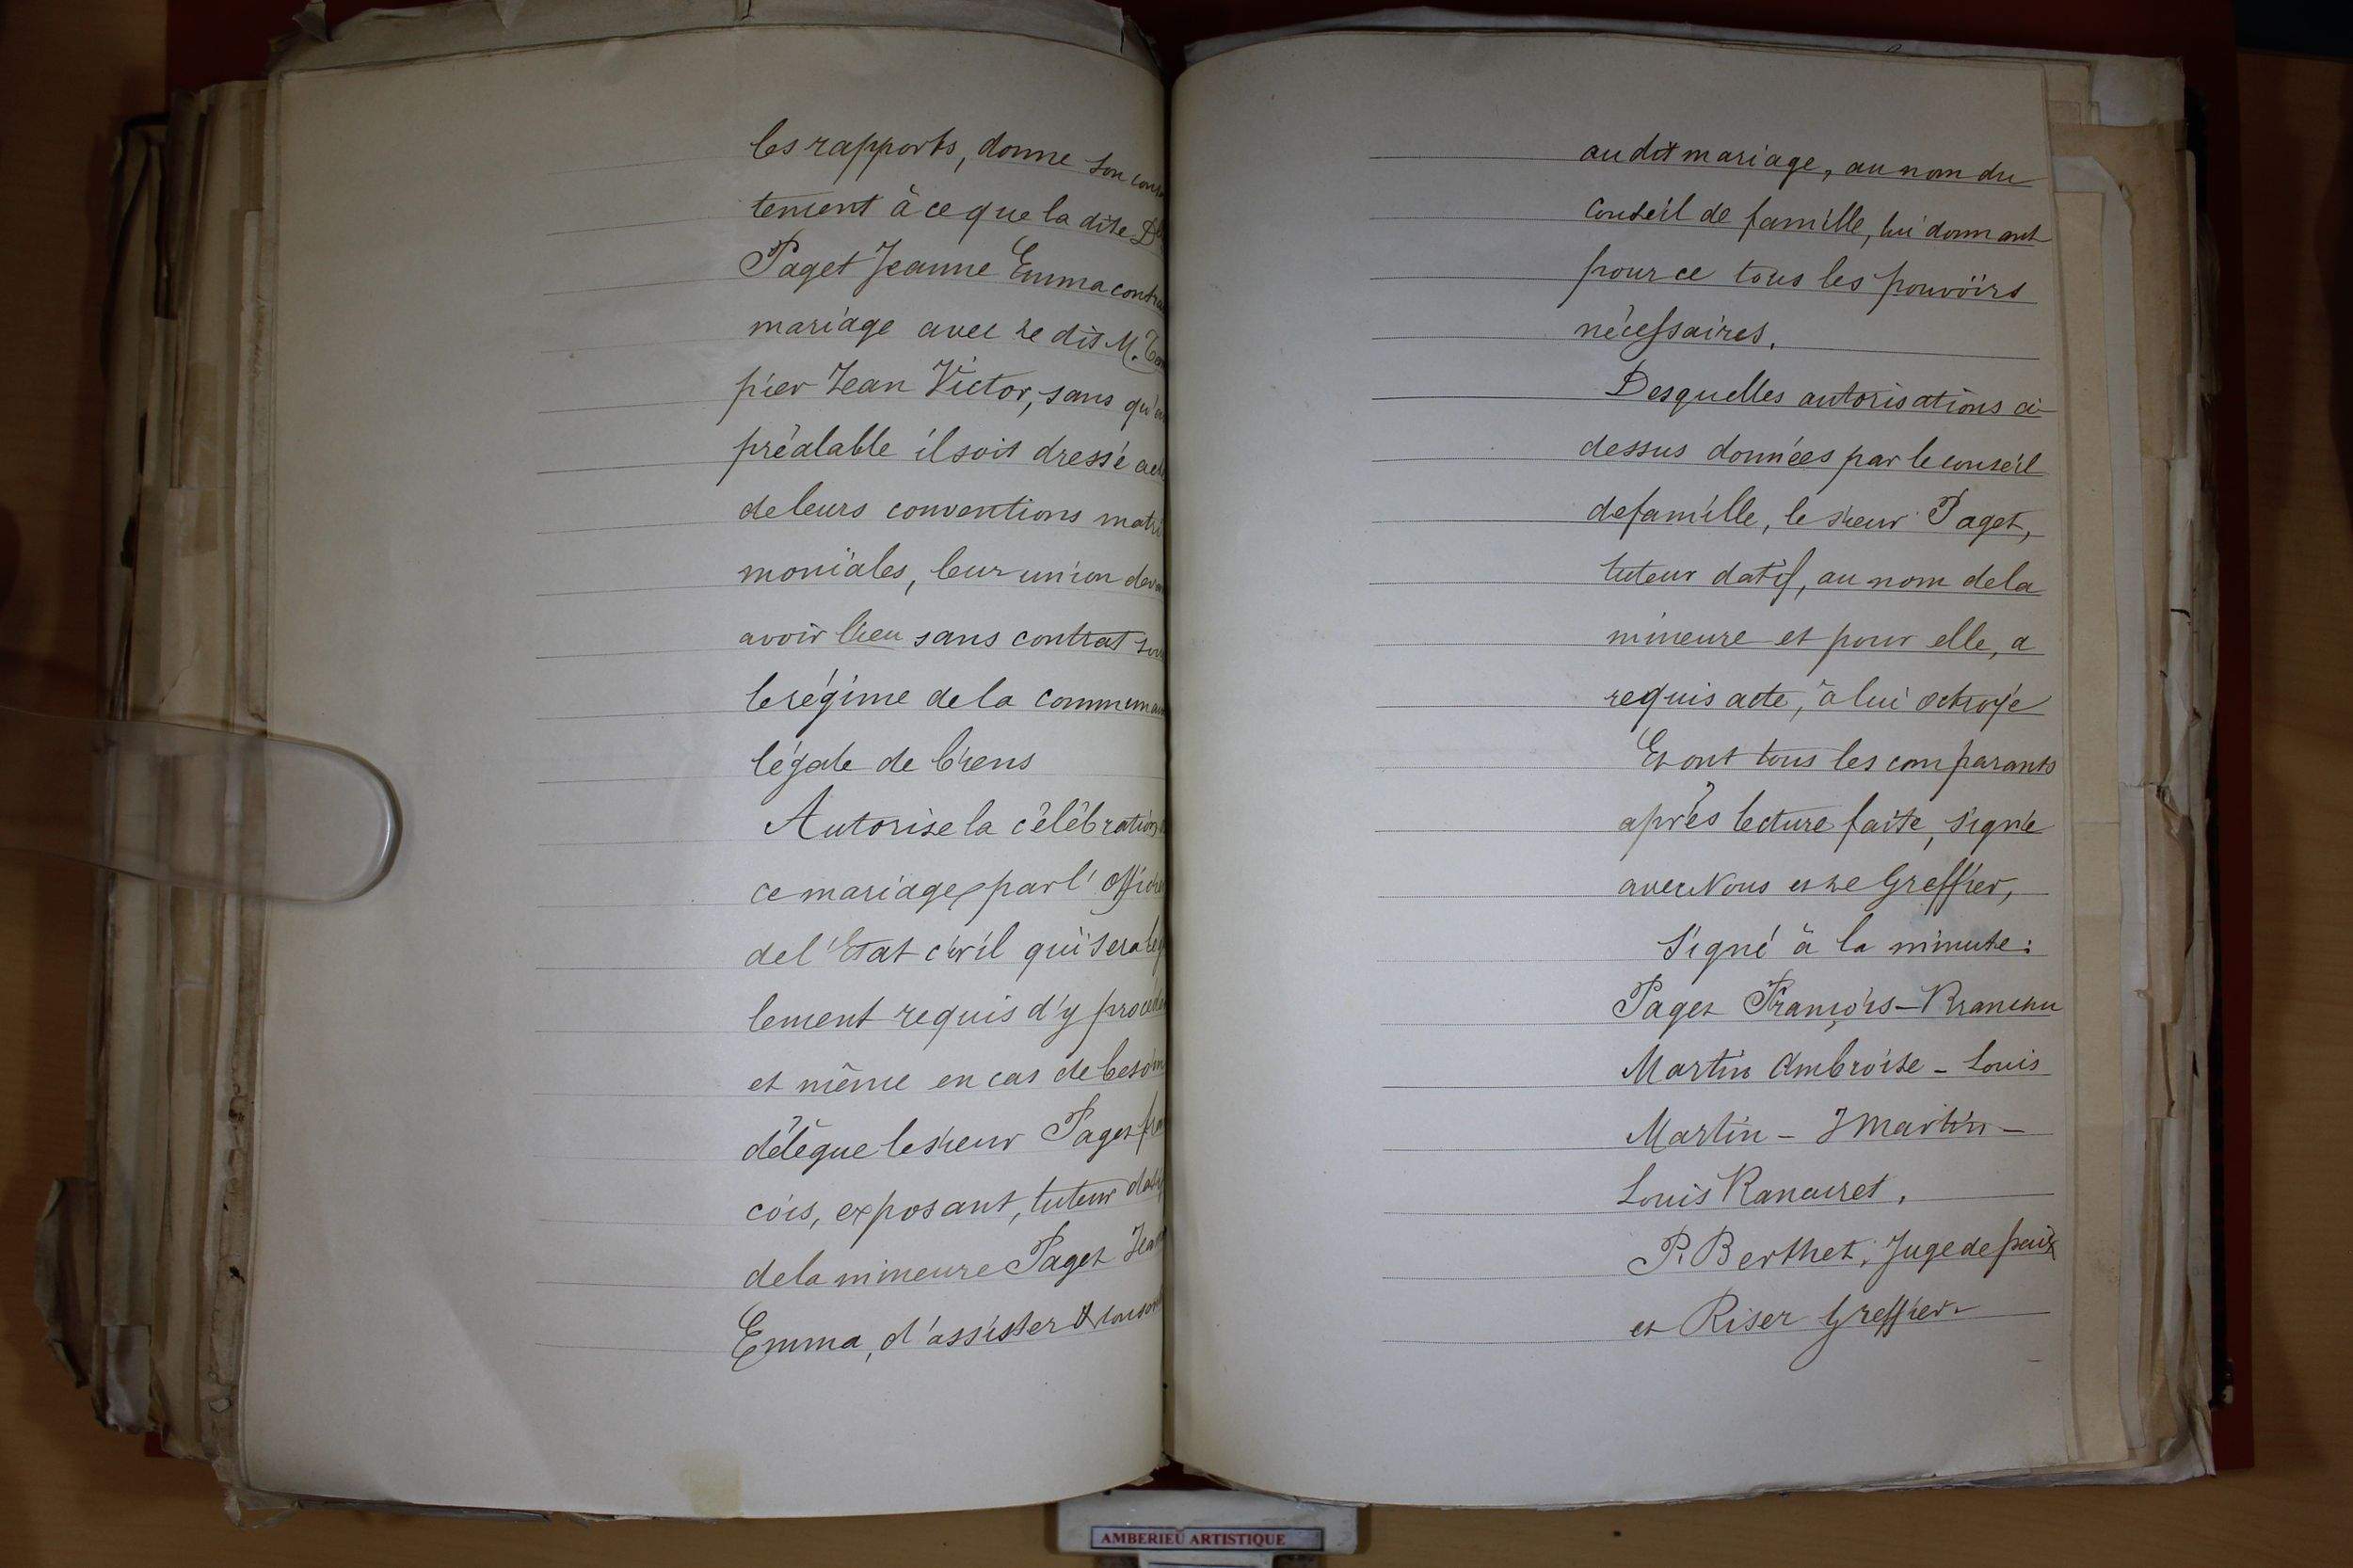 les rapports, donne son conse
tement à ce que la dite
Paget Jeanne Emma contra
mariage avec le dit M.
pier Jean Victor, sans qu'au
préalable il soit dressé acte
de leurs conventions matri
moniales, leur union devan
avoir lieu sans contrat sous
le régime de la communau
légale de biens
Autorise la célébration
ce mariage par l'Officier
de l'Etat civil qui sera lég
lement requis d'y procéder
et même en cas de besoin
délègue le sieur Paget fran
cois, exposant, tuteur datif
de la mineure Paget Jean
Emma, d'assister & consen
au dit mariage, au nom du
Conseil de famille, lui donnant
pour ce tous les pouvoirs
nécessaires.
Desquelles autorisations ci-
dessus données par le conseil
de famille, le sieur Paget,
tuteur datif, au nom de la
mineure et pour elle, a
requis acte, à lui octroyé
Et ont tous les comparants
après lecture faite, signé
avec Nous et le Greffier,
Signé à la minute:
Paget François -
Martin Ambroise - Louis
Martin - J Martin -
Louis
P. Berthet, Juge de paix
et Riser Greffier-
AMBERIEU ARTISTIQUE